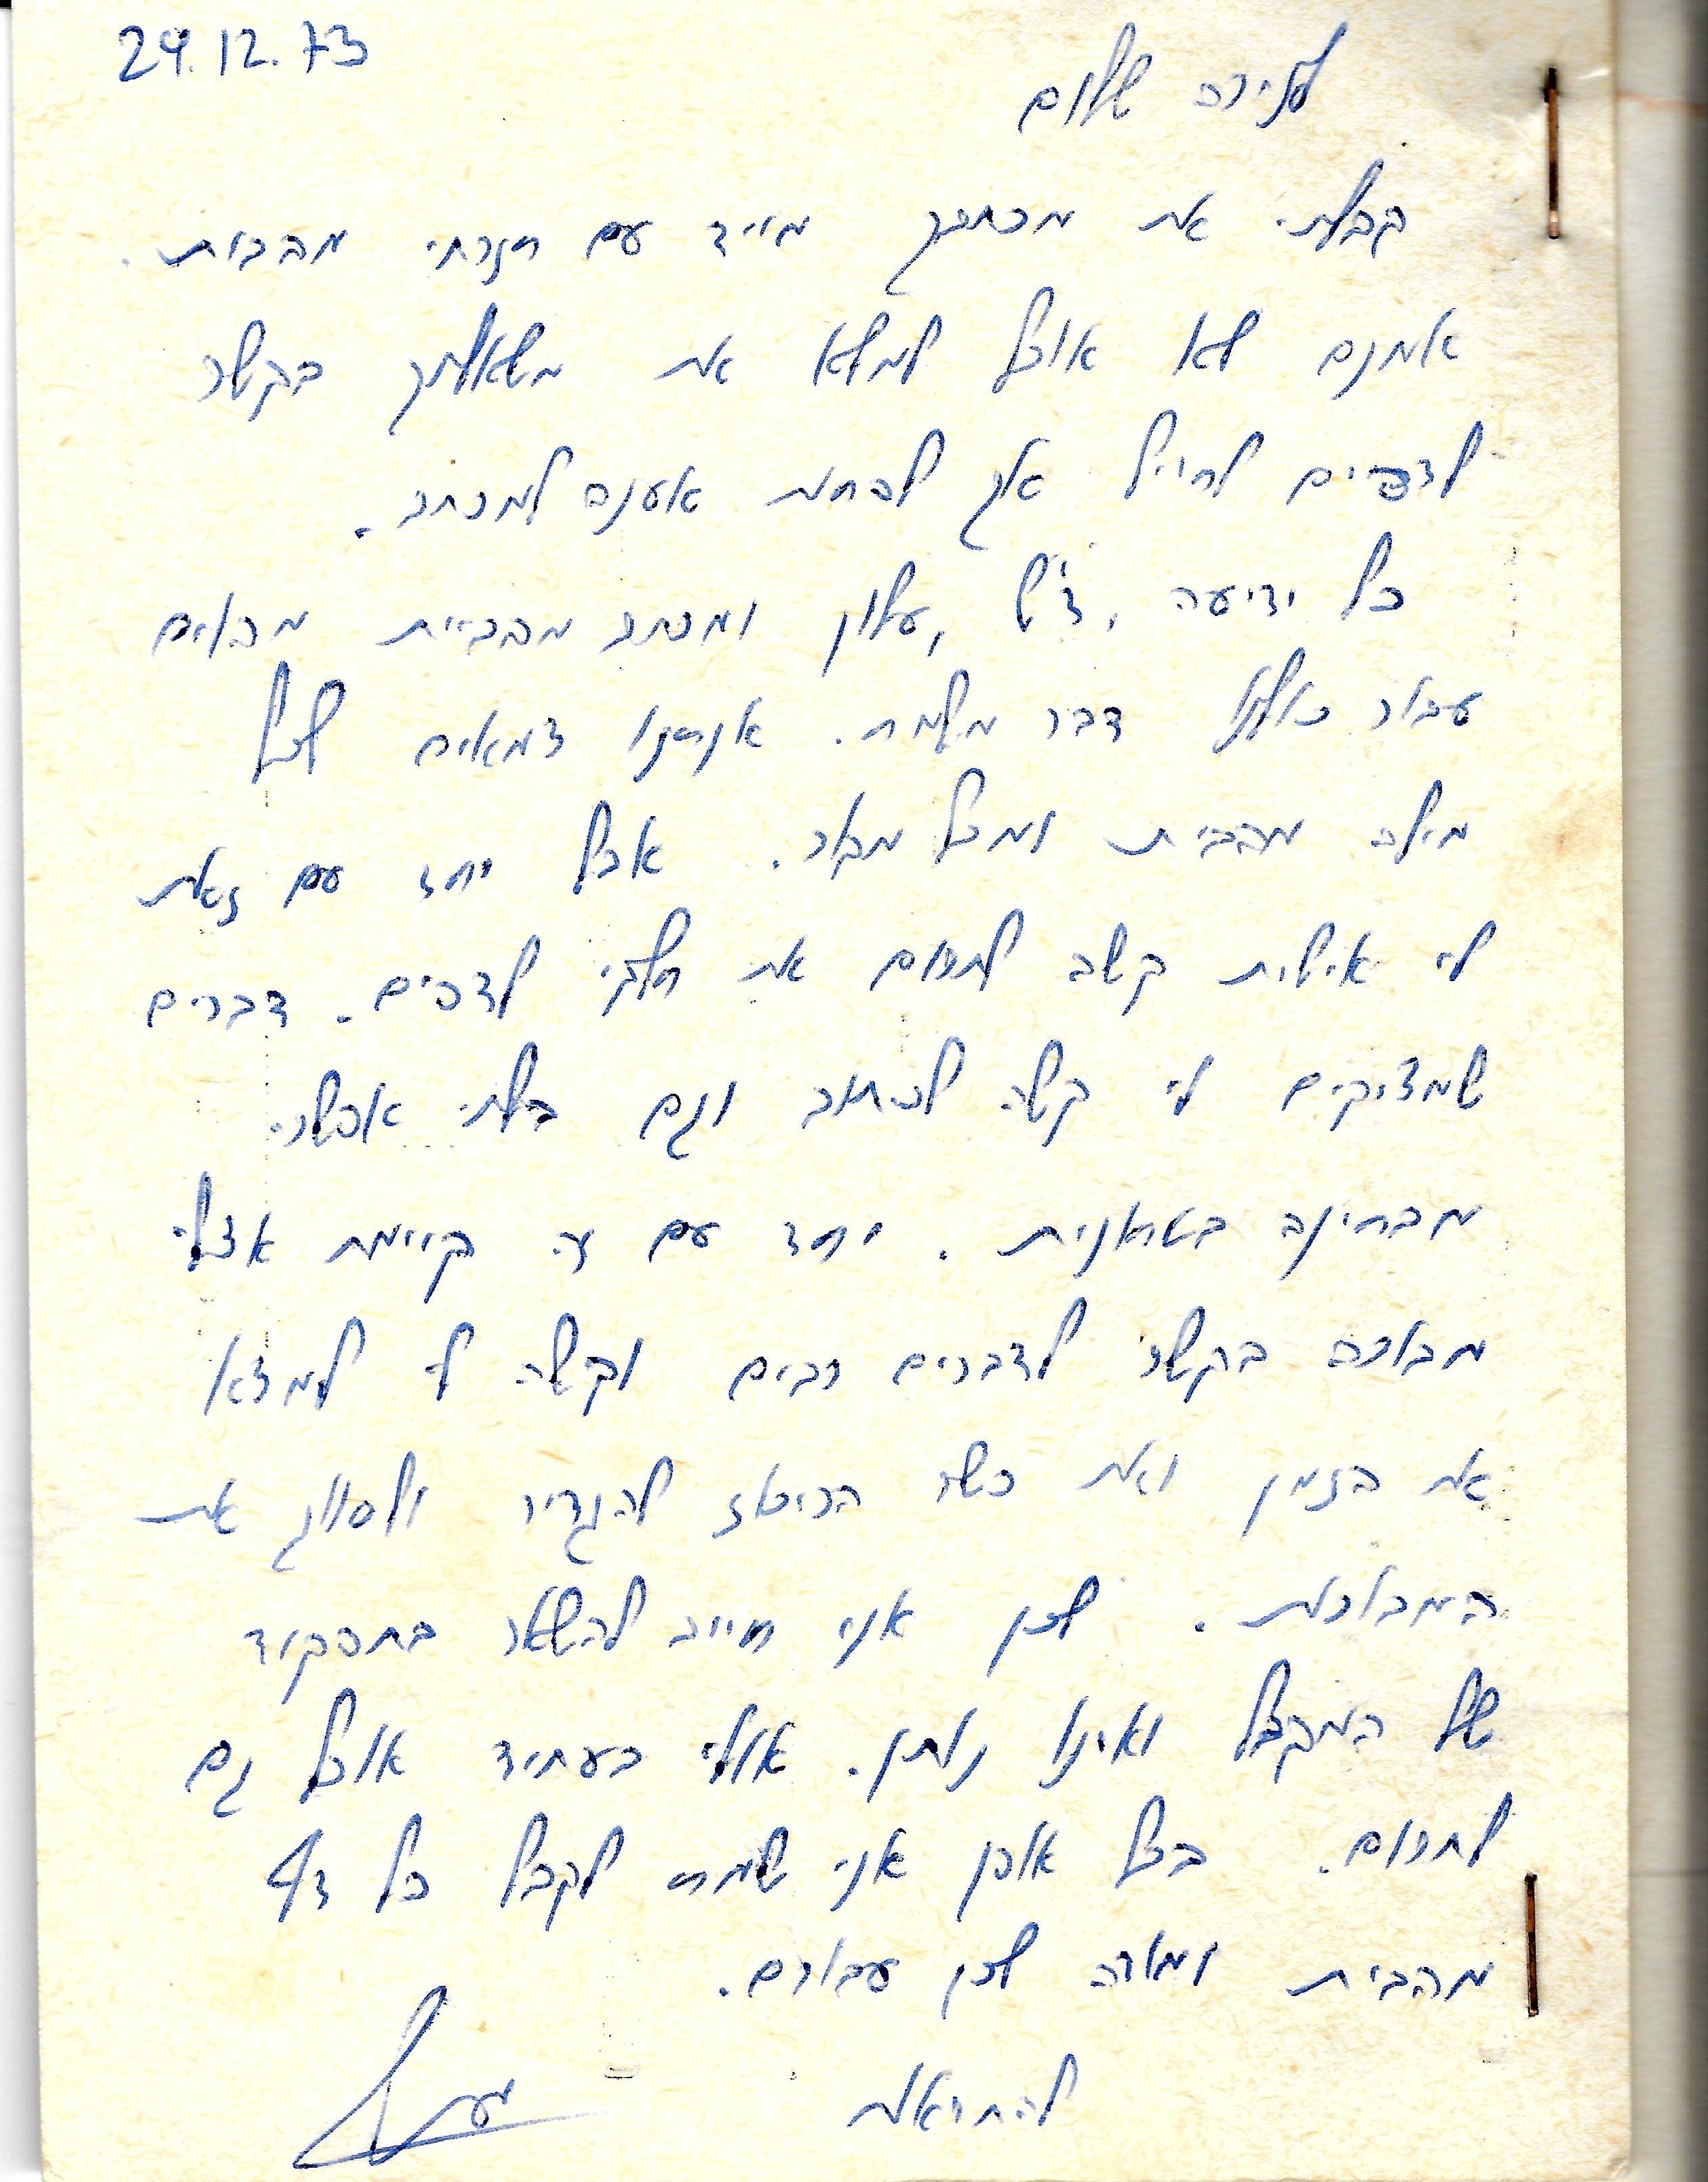 24.12.73
שלום
קבלתי את מכתבך מייד עם חזרתי מהבית.
אמנם לא אוכל למלא את משאלתך בקשר
לדפים לחייל אך לפחות אענה למכתב.
כל ידיעה, ד"ש, עלון ומכתב מהבית מהוים
עבור כולנו דבר מה. אנחנו צמאים לכל
מילה מהבית ומכל מקור. אבל יחד עם זאת
לי אישית קשה לתרום את חלקי לדפים. דברים
שמציקים לי קשה לכתוב וגם בלתי אפשרי
מבחינה בטחונית. יחד עם זה קיימת אצלי
מבוכה בקשר לדברים רבים וקשה לי למצא
את הזמן ואת כשר הריכוז להגדיר ולסווג את
המבוכות. לכן אני חייב להשאר בתפקיד
של המקבל ואינו נותן. אולי בעתיד אוכל גם
לתרום. בכל אופן אני שמח לקבל כל ד"ש
מהבית ומודה לכן עבורם.
להתראות